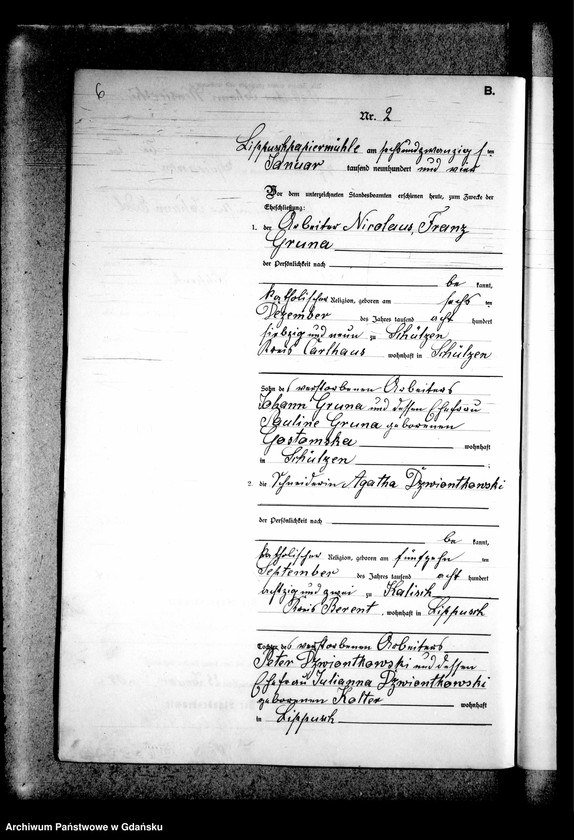 6
B.
Nr. 2
Lippuschpapiermühle am sechsundzwanzig ten
Januar tausend neunhundert und vier
Vor dem unterzeichneten Standesbeamten erschienen heute, zum Zwecke der
Eheschließung:
1. der Arbeiter Nicolaus, Franz
Gruna
der Persönlichkeit nach
be kannt,
katholischer Religion, geboren am sechs ten
Dezember des Jahres tausend acht hundert
siebzig und neun zu Schülzen
Kreis Carthaus wohnhaft in Schülzen
Sohn des verstorbenen Arbeiters
Johann Gruna und dessen Ehefrau
Pauline Gruna geborenen
Gostomska wohnhaft
in Schülzen ;
2. die Schneiderin Agatha Dzwiontkowski
der Persönlichkeit nach
be kannt,
katholischer Religion, geboren am fünfzehn ten
September des Jahres tausend acht hundert
achtzig und zwei zu Kalisch
Kreis Berent, wohnhaft in Lippusch
Tochter des verstorbenen Arbeiters
Peter Dzwiontkowski und dessen
Ehefrau Julianna Dzwiontkowski
geborenen Kotter wohnhaft
in Lippusch
Archiwum Państwowe w Gdańsku